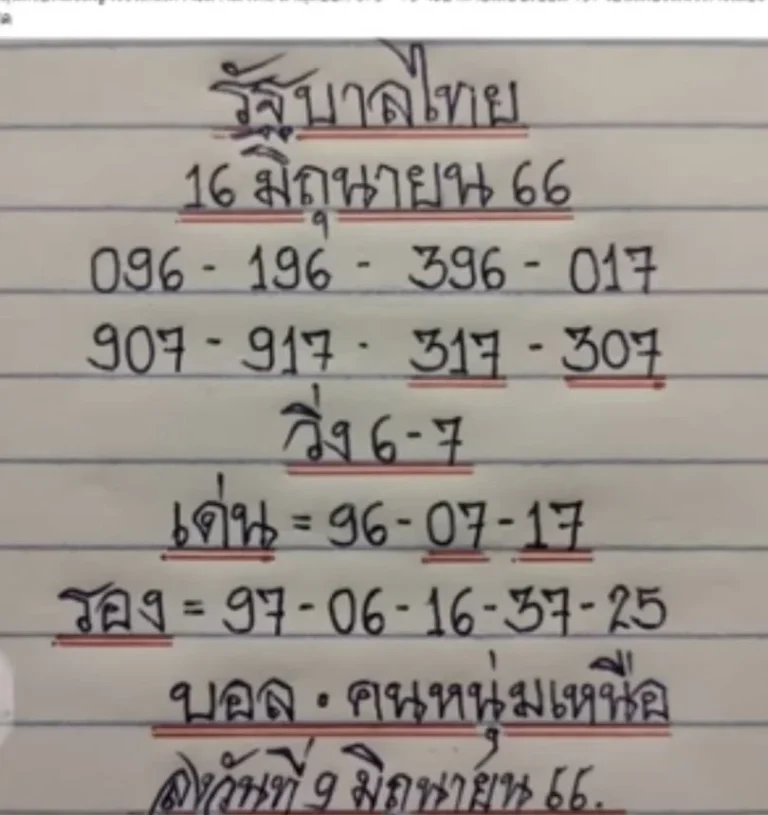 รัฐบาลไทย
16 มิถุนายน 66
096 - 196 - 396 - 017
907 - 917 - 317 - 307
วิ่ง 6-7
เด่น = 96-07-17
รอง = 97-06-16-37-25
บอล . คนหนุ่มเหนือ
ลงวันที่ 9 มิถุนายน 66.